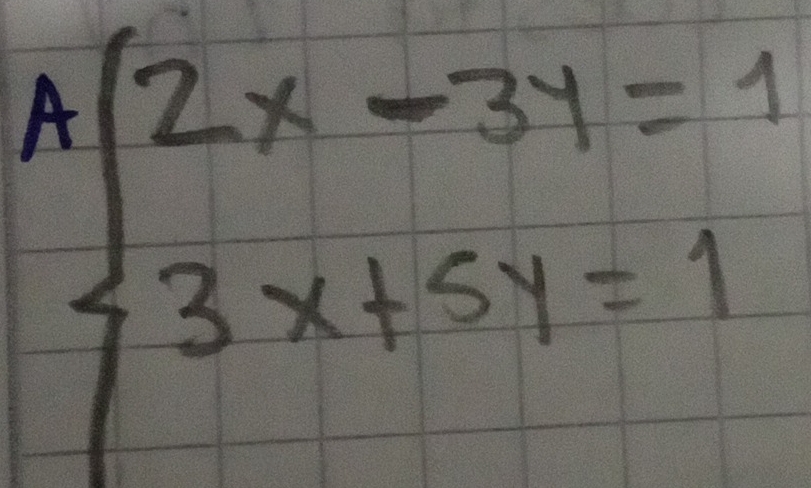 A { 2x - 3y = 1
3x + 5y = 1